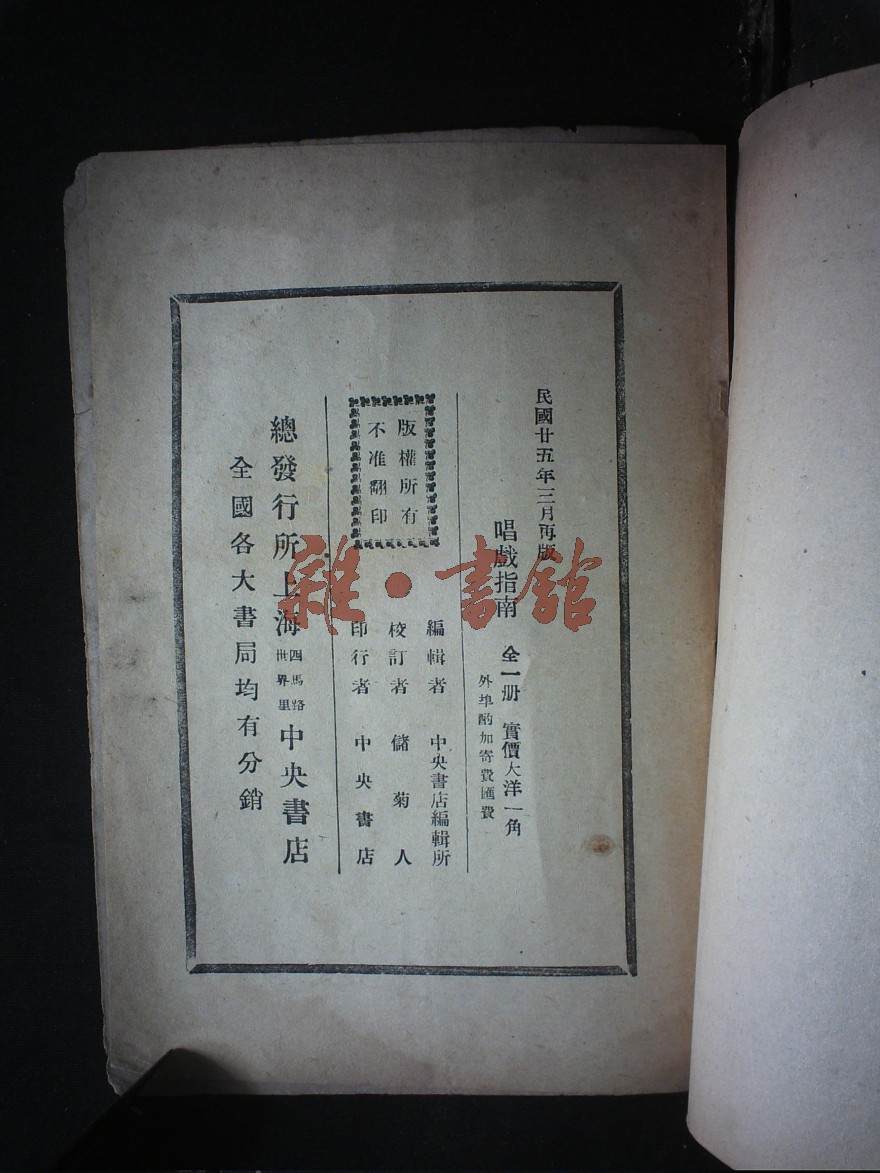 民國廿五年三月再版
唱戲指南 全一册 實價大洋一角
外埠酌加寄費匯費
編輯者 中央書店編輯所
校訂者 儲菊人
印行者 中央書店
版權所有
不准翻印
總發行所上海四馬路世界里中央書店
全國各大書局均有分銷
雜·書館